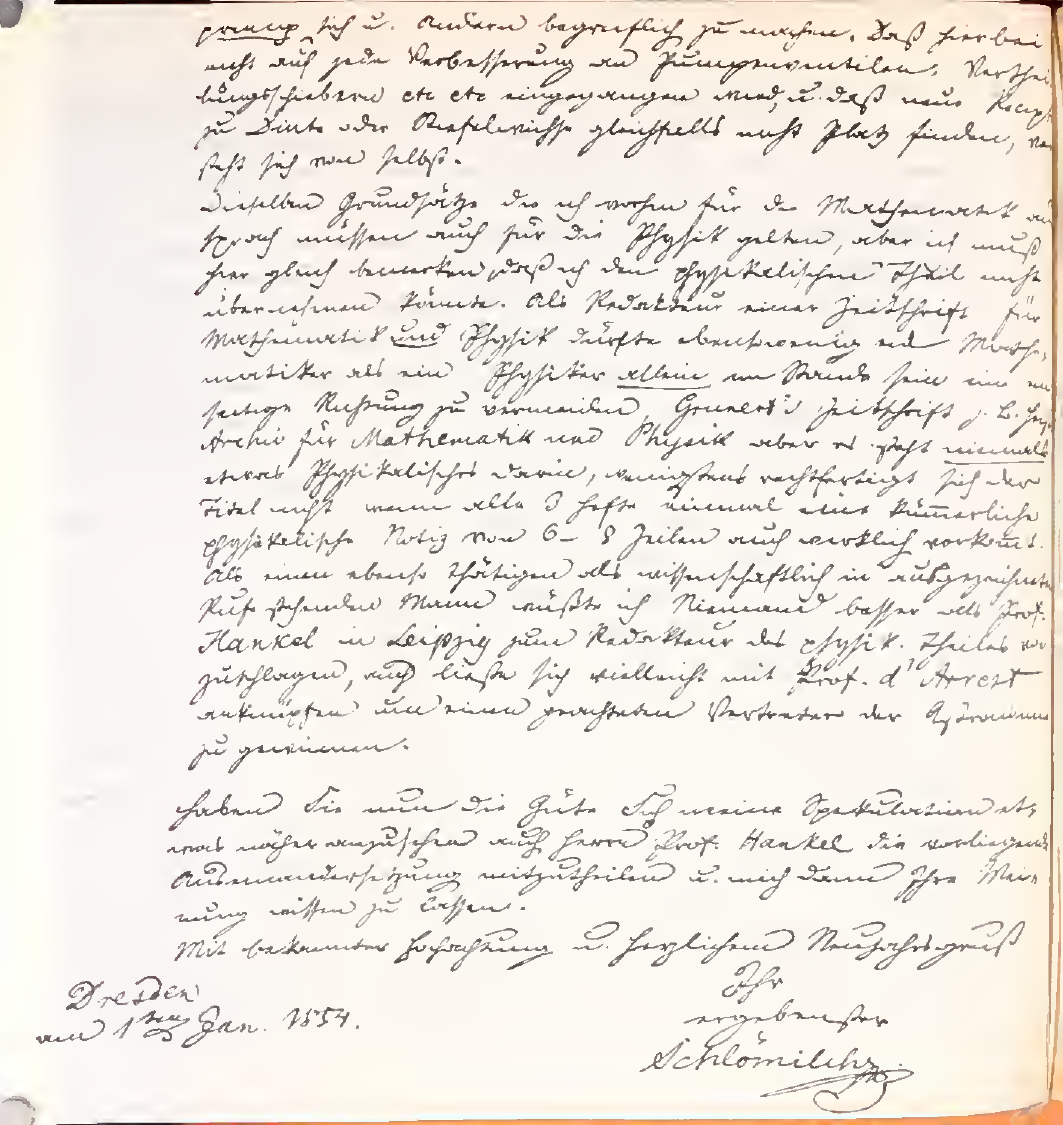 princip sich u. Andern begreiflich zu machen. Daß hierbei
nicht auf jede Verbesserung an Pumpenventilen, Verthei
lungsschiebern etc etc eingegangen wird, u. daß neue Recept
zu Dinte oder Stiefelwichse gleichfalls nicht Platz finden, ver
steht sich von selbst.
Dieselben Grundsätze die ich vorhin für die Mathematik aus
sprach müssen auch für die Physik gelten, aber ich muß
hier gleich bemerken, daß ich den physikalischen Theil nicht
übernehmen könnte. Als Redakteur einer Zeitschrift für
Mathematik und Physik dürfte ebensowenig ein Mathe-
matiker als ein Physiker allein im Stande sein eine ein
seitige Richtung zu vermeiden, Grunert's Zeitschrift z. B. heißt
Archiv für Mathematik und Physik aber es steht niemals
etwas Physikalisches darin, wenigstens rechtfertigt sich der
Titel nicht wenn alle 3 Hefte einmal eine kümmerliche
physikalische Notiz von 6-8 Zeilen auch wirklich vorkommt.
Als einen ebenso thätigen als wissenschaftlich in ausgezeichnetem
Rufe stehenden Mann wüßte ich Niemand besser als Prof.
Hankel in Leipzig zum Redakteur des physik. Theiles vor
zuschlagen, auch ließe sich vielleicht mit Prof. d'Arrest
anknüpfen um einen geachteten Vertreter der Astronomie
zu gewinnen.
Haben Sie nun die Güte Sich meine Spekulation et-
was näher anzusehen auch Herrn Prof. Hankel die vorliegende
Auseinandersetzung mitzutheilen u. mich dann Ihre Mei-
nung wissen zu lassen.
Mit bekannter Hochachtung u. herzlichem Neujahrsgruß
Ihr
ergebenster
Schlömilch
Dresden
am 1ten Jan. 1854.